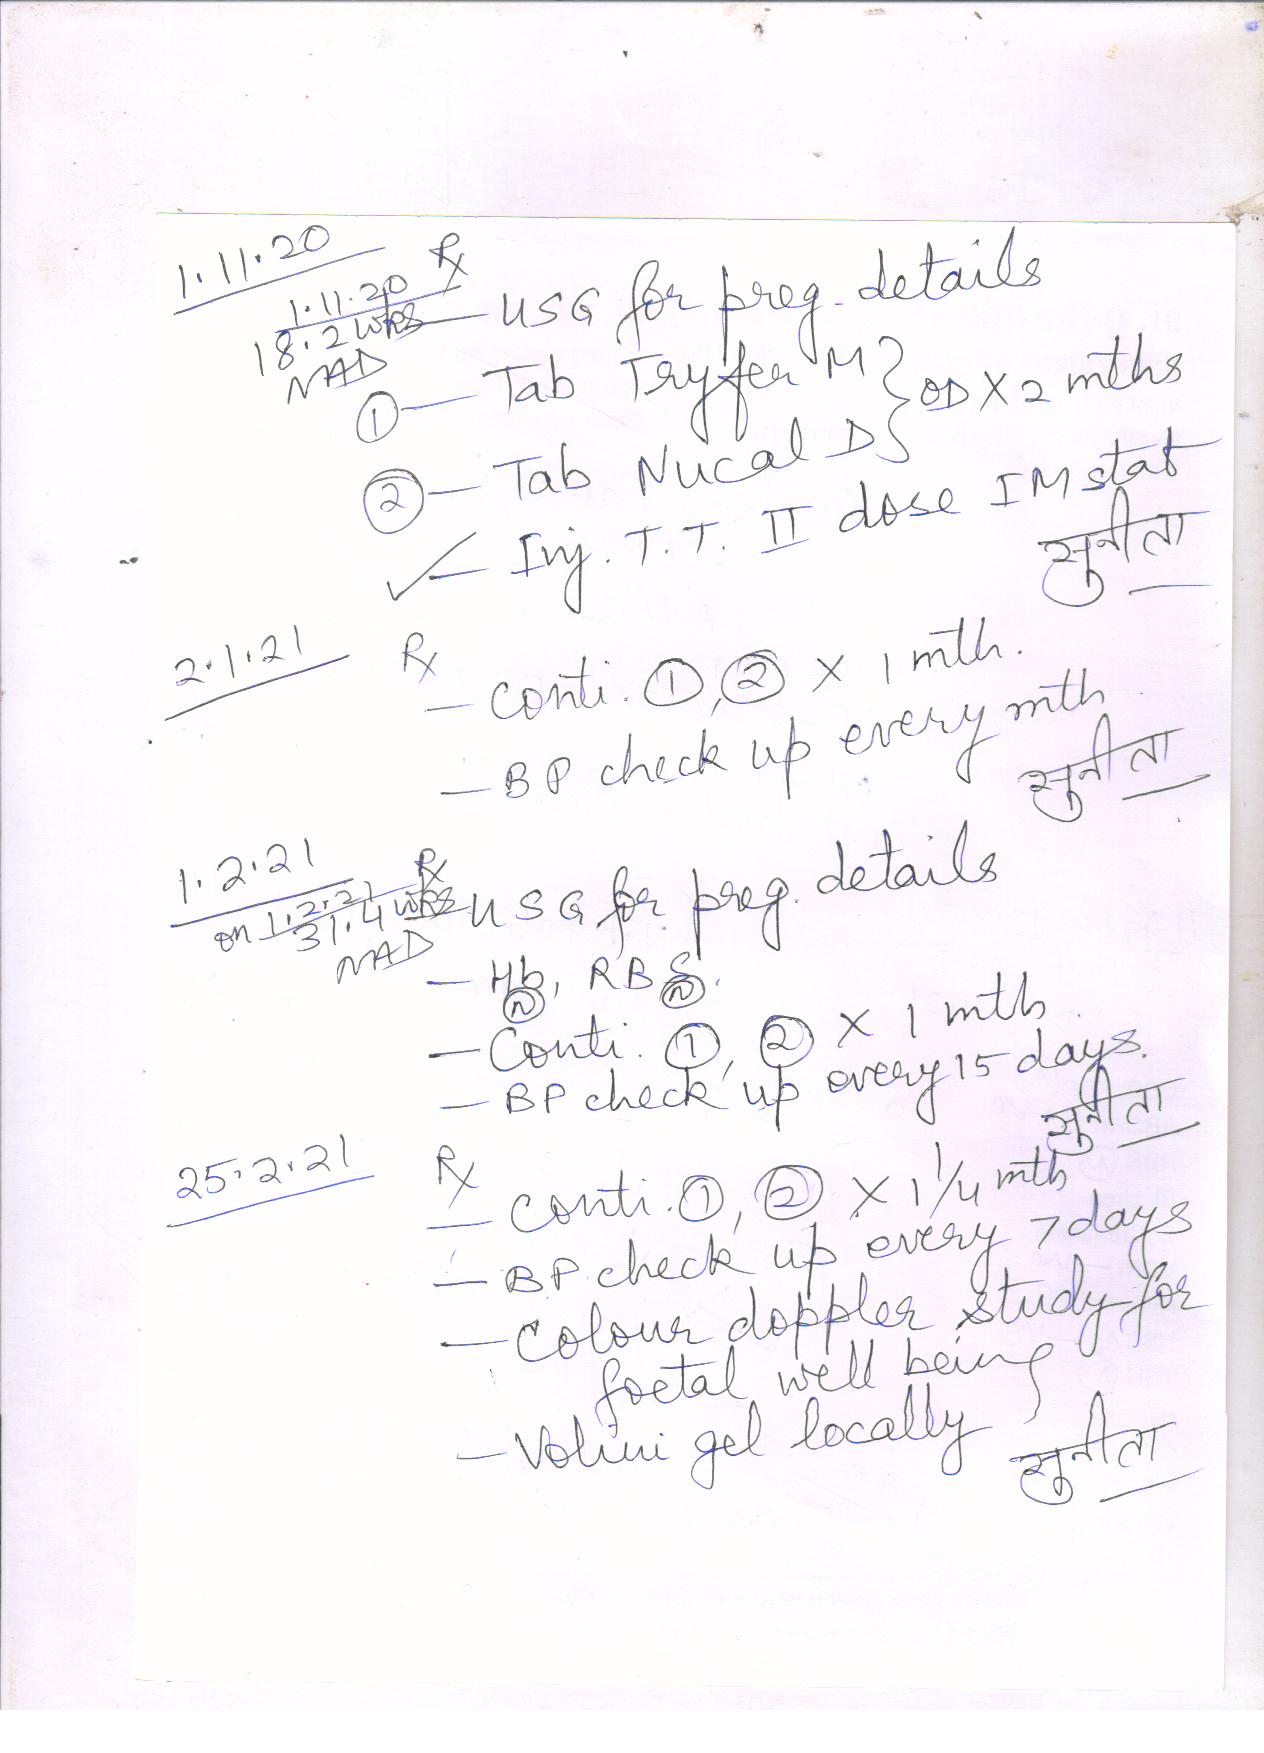 1.11.20
Rx
1.11.20
18.2 wks
NAD
— USG for preg. details
① — Tab Tryfer M } OD X 2 mths
② — Tab Nucal D }
✓ — Inj. T.T. II dose IM stat
सुनीता
2.1.21
Rx
— Conti. ①, ② X 1 mth.
— BP check up every mth
सुनीता
1.2.21
Rx
on 1.2.21
31.4 wks
NAD
— USG for preg. details
— Hb, RBS.
Ⓝ Ⓝ
— Conti. ①, ② X 1 mth
— BP check up every 15 days.
सुनीता
25.2.21
Rx
— Conti. ①, ② X 1 1/4 mth
— BP check up every 7 days
— Colour doppler study for
foetal well being
— Volini gel locally
सुनीता